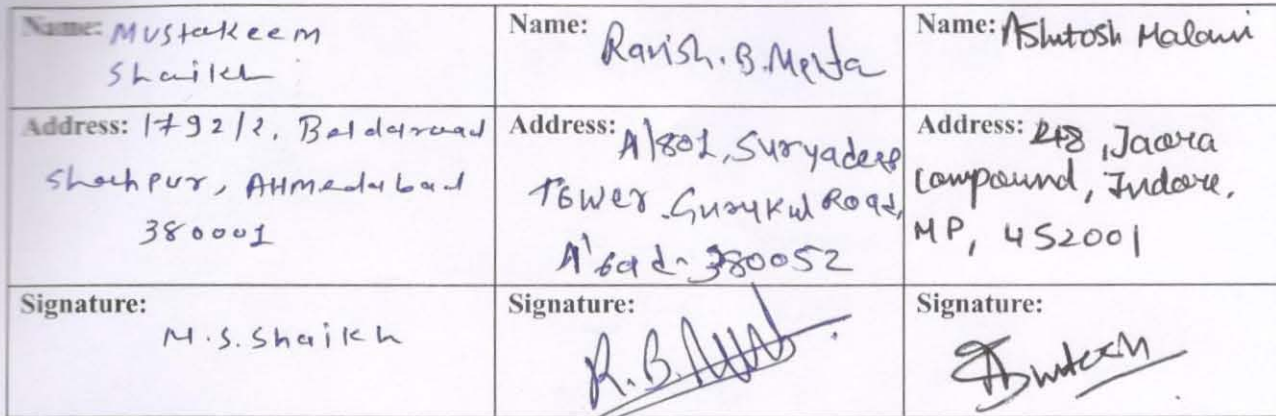 Name: Mustakeem
Shaikh
Name: Ravish. B. Mehta
Name: Ashutosh Malani
Address: 1792/2,
Shahpur, AHmedabad
380001
Address: A/801, Suryadeep
Tower Gurukul Road,
A'bad-380052
Address: 248, Jaora
Compound, Indore,
MP, 452001
Signature:
M.S.Shaikh
Signature:
R.B.
Signature: